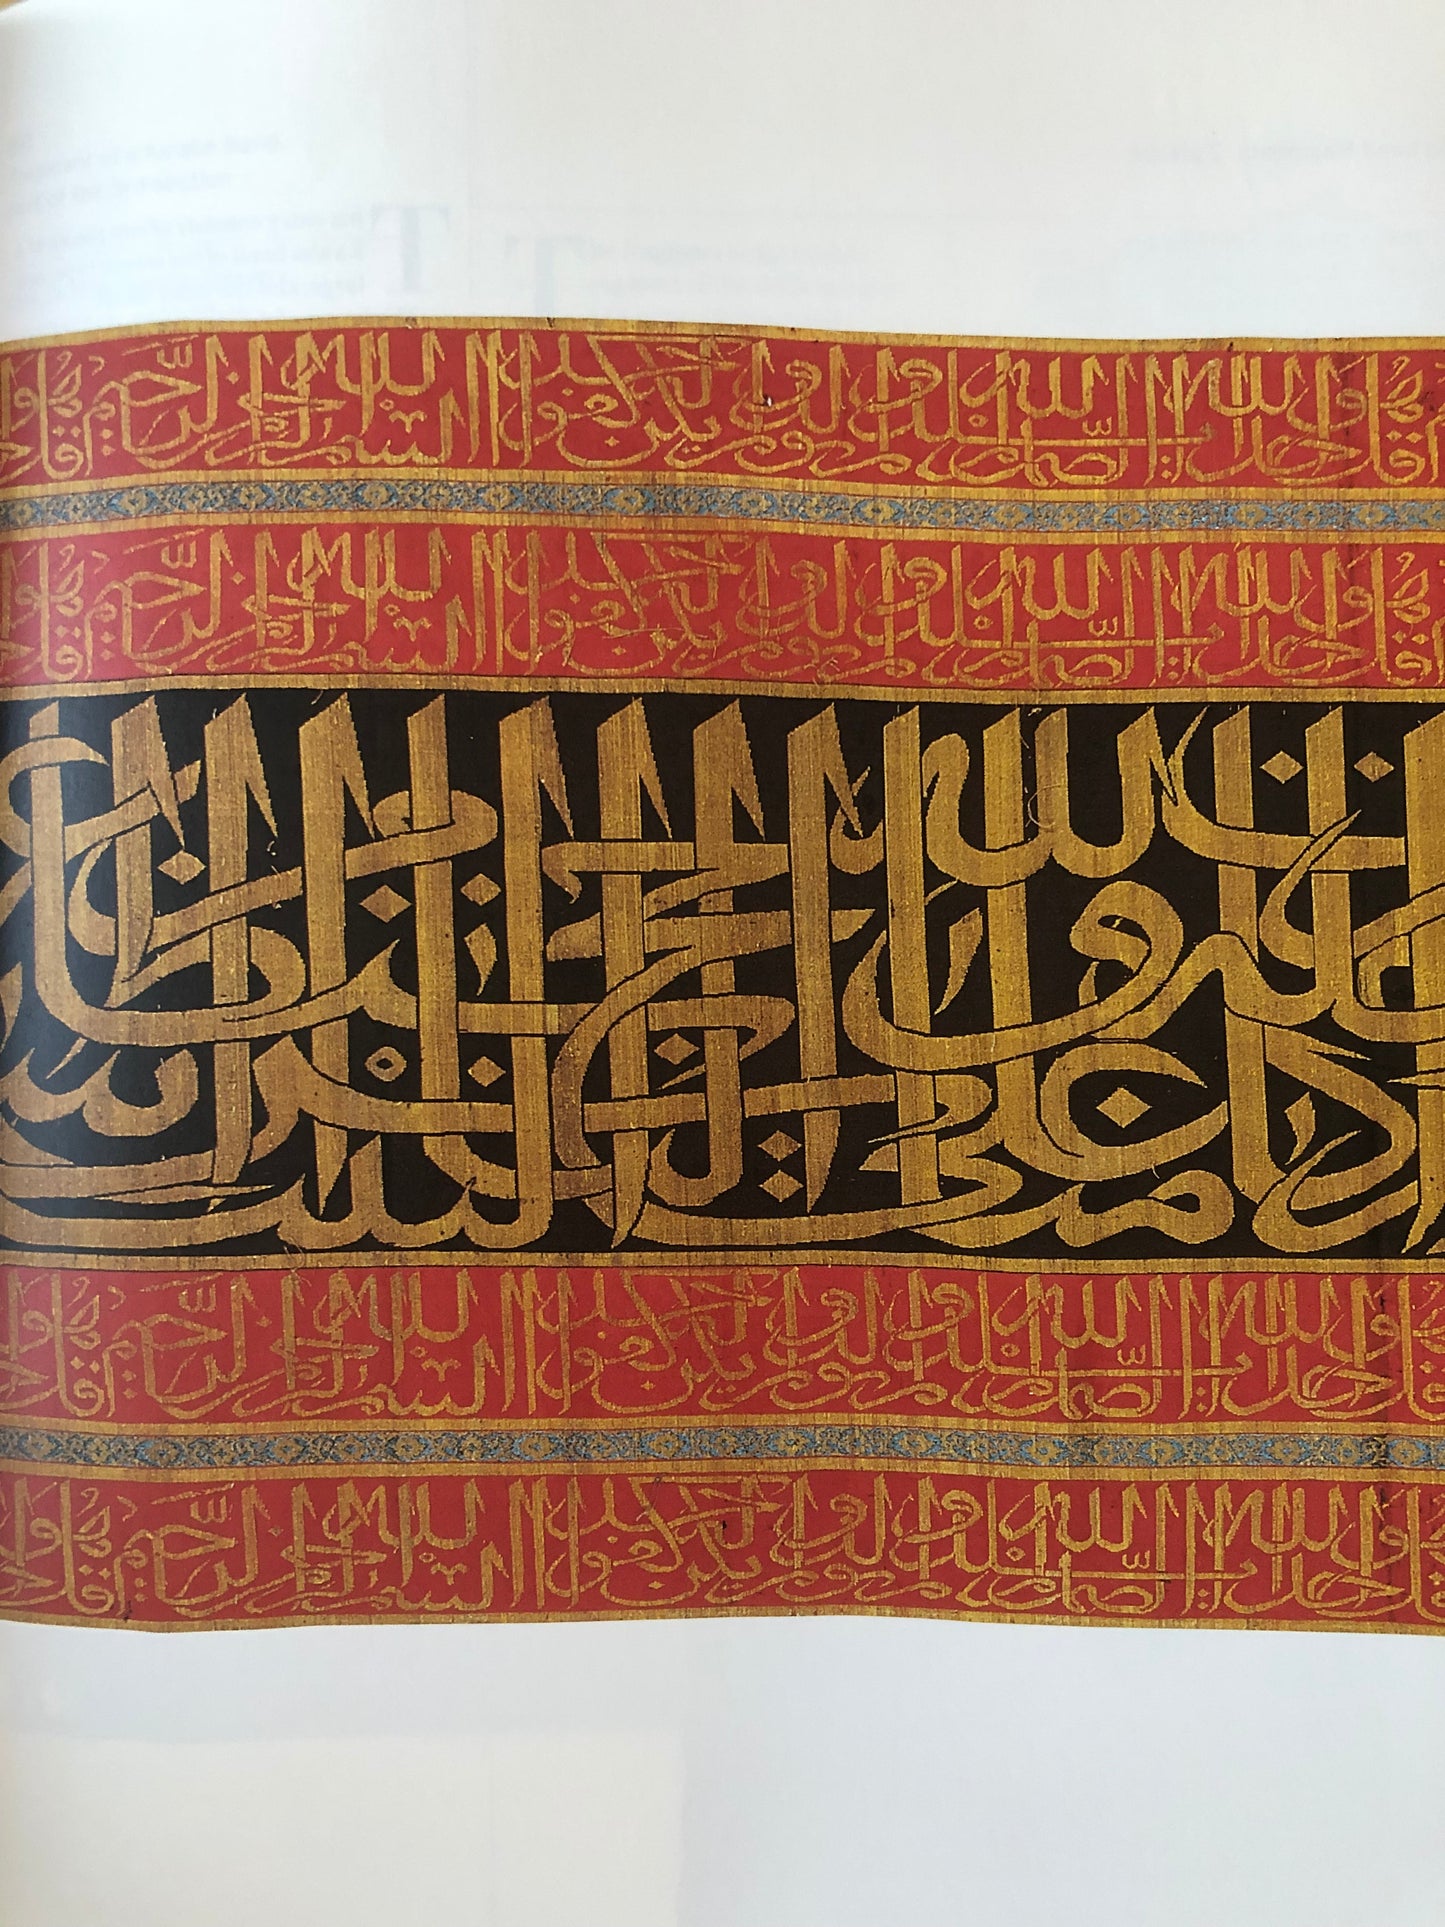 قل هو الله احد الله الصمد لم يلد ولم يولد ولم يكن له كفوا احد بسم الله الرحمن الرحيم قل هو
قل هو الله احد الله الصمد لم يلد ولم يولد ولم يكن له كفوا احد بسم الله الرحمن الرحيم قل هو
كان امنا ولله على الناس حج البيت من استطاع
قل هو الله احد الله الصمد لم يلد ولم يولد ولم يكن له كفوا احد بسم الله الرحمن الرحيم قل هو
قل هو الله احد الله الصمد لم يلد ولم يولد ولم يكن له كفوا احد بسم الله الرحمن الرحيم قل هو